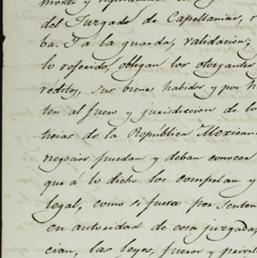 del Juzgado de Capellanias, r
ba. Y a la guarda, validacion,
lo referido, obligan los otorgantes
reditos, sus bienes habidos y por h
ten al fuero y jurisdiccion de lo
ticias de la Republica Mexican
negocios puedan y deban conocer
que á lo dicho los compelan y
legal, como si fuera por senten
en autoridad de cosa juzgada,
cian, las leyes, fueros y privil